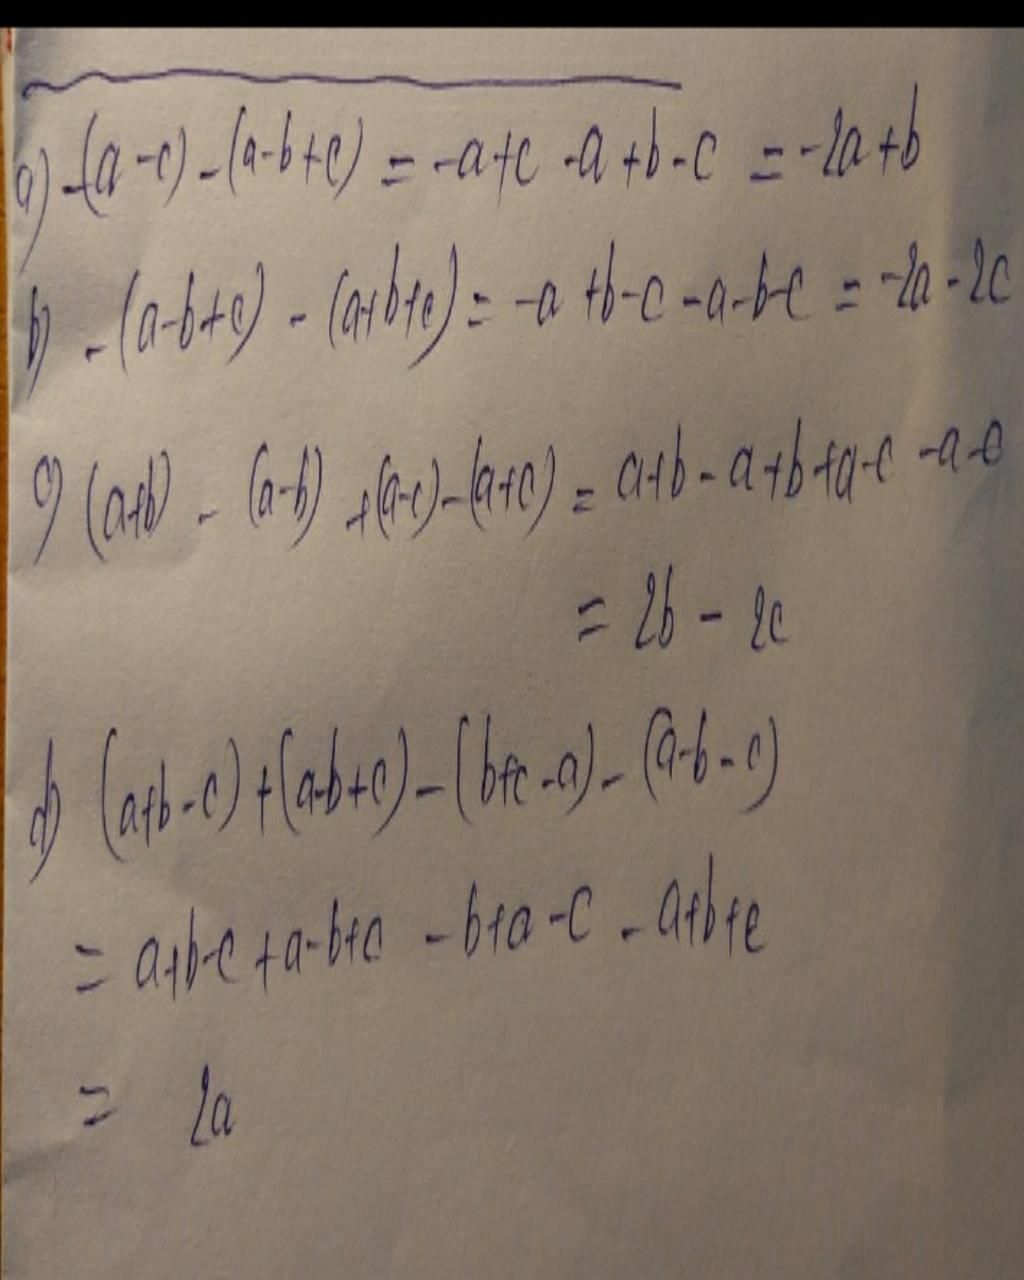 a) -(a-c) - (a-b+c) = -a+c -a+b-c = -2a+b
b) -(a-b+c) - (a+b+c) = -a+b-c-a-b-c = -2a-2c
c) (a+b) - (a-b) +(a-c)-(a+c) = a+b-a+b+a-c-a-c
= 2b - 2c
d) (a+b-c)+(a-b+c)-(b+c-a)-(a-b-c)
= a+b-c+a-b+c-b+a-c-a+b+c
= 2a